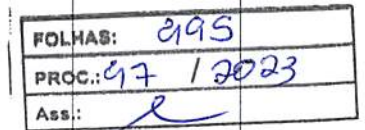 FOLHAS: 995
PROC.: 97 / 2023
Ass.: